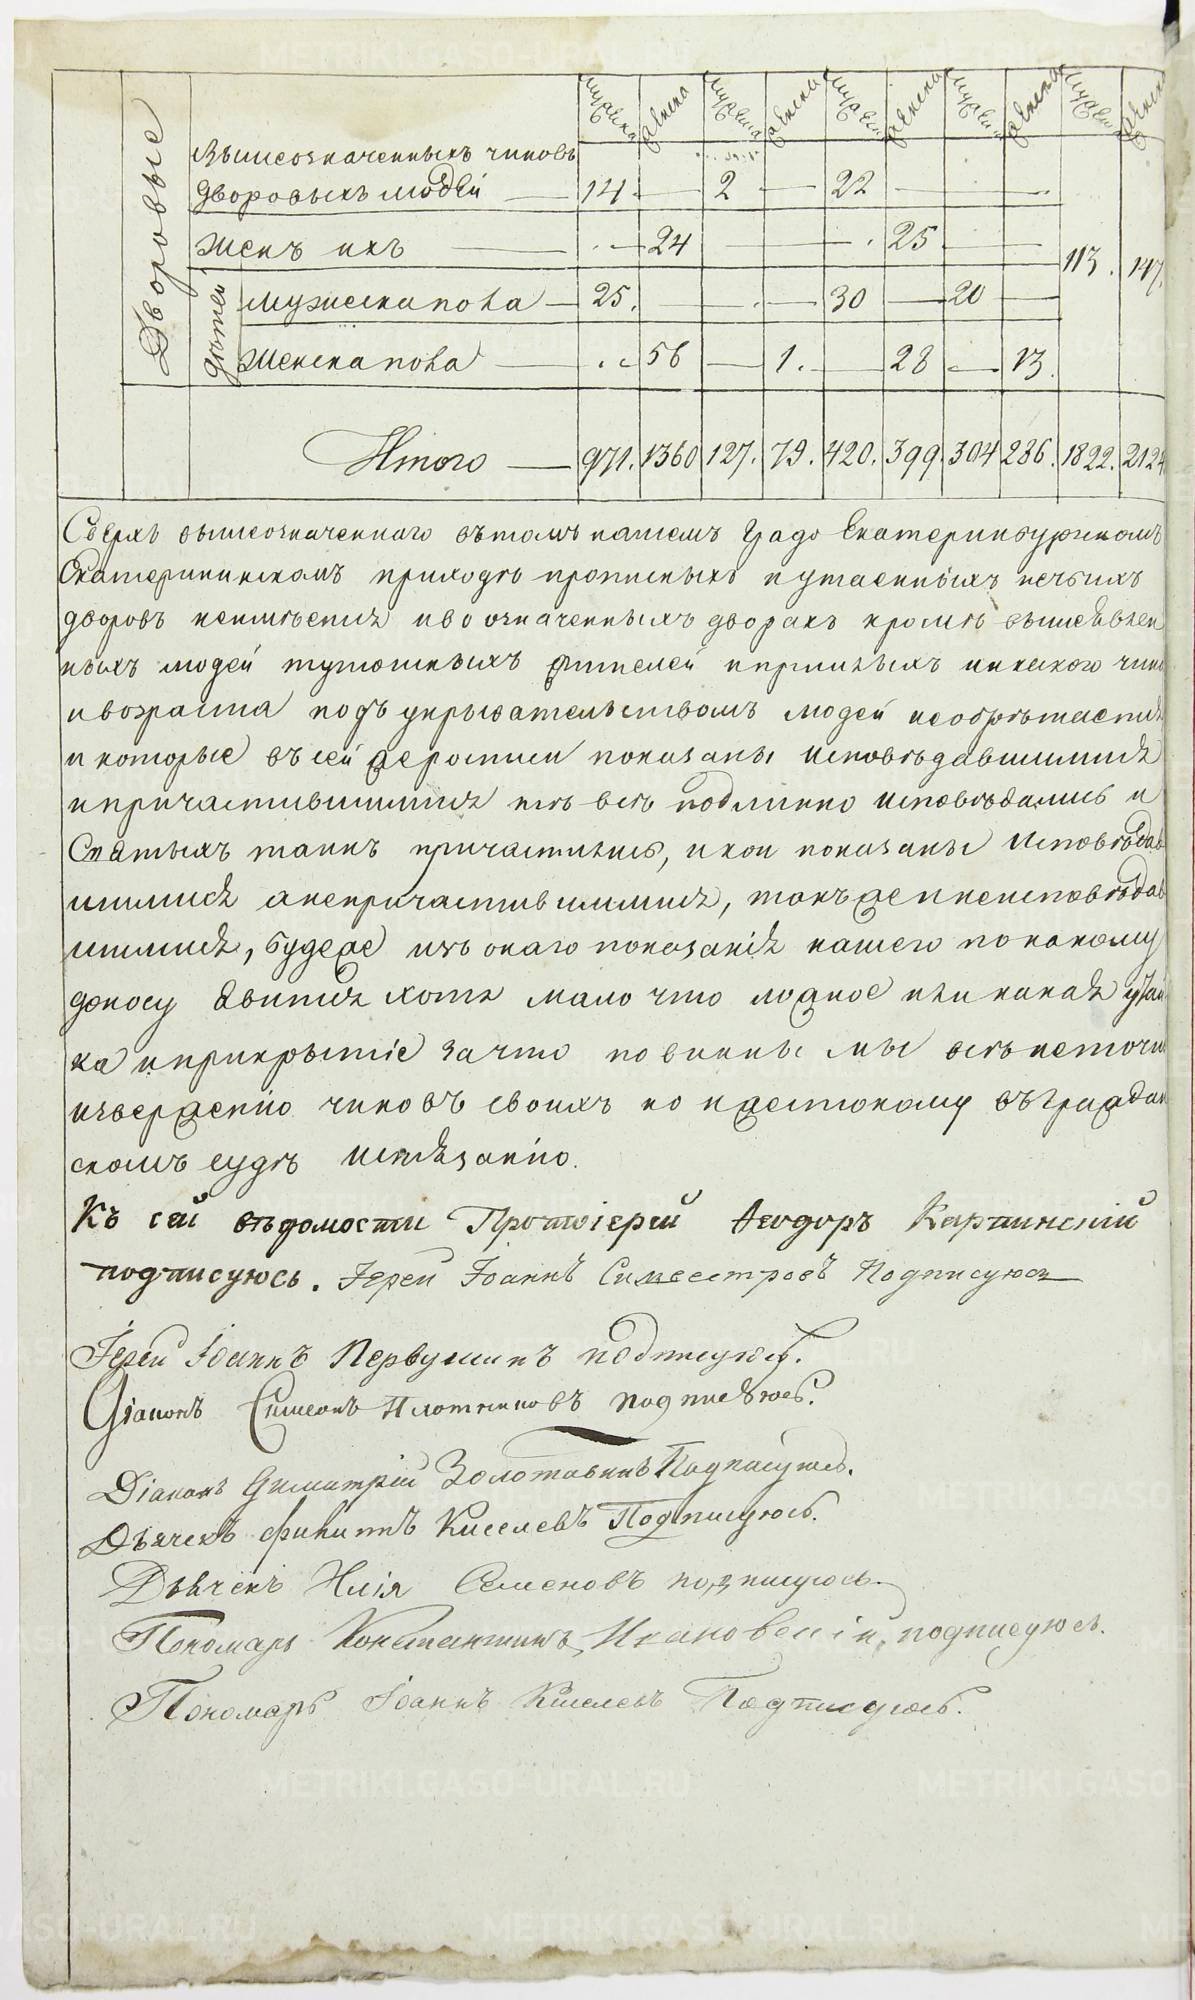 мужеска женска мужеска женска мужеска женска мужеска женска мужеска женска
Дворовые
Вышеозначенныхъ чиновъ
дворовыхъ людей 14. 2 22
Женъ ихъ 24 25 113. 147.
детей
мужеска пола 25. 30 20
женска пола 56 1. 28 13.
Итого 971. 1360 127. 79. 420. 399. 304 286. 1822. 2124
Сверхъ вышеозначенного въ томъ нашемъ Градо Екатеринбургскомъ
Екатерининскомъ приходѣ прописныхъ и утаенныхъ ничьихъ
дворовъ неимѣется и во означенныхъ дворахъ кромѣ вышеявлен
ныхъ людей тутошныхъ жителей и пришлыхъ никакого чина
и возраста подъ укрывательствомъ людей необрѣтается
и которые въ сей же росписи показаны исповѣдавшимися
и причастившимися тѣ всѣ подлинно исповѣдались и
Святыхъ таинъ причастились, и кои показаны исповѣдав
шимися а непричастившимися, такъ же и неисповѣдав
шимися, будеже изъ онаго показанія нашего по какому
доносу явится хотя мало что ложное или какая утай
ка и прикрытіе за что повинны мы всѣ неточию
изверженію чиновъ своихъ но и жестокому въ граждан
скомъ судѣ истязанію.
Къ сей вѣдомости Протоіерей Ѳеодоръ Карпинскій
подписуюсь. Іерей Іоаннъ Сильвестровъ Подписуюсь
Іерей Іоаннъ Первушинъ подписуюсь.
Діаконъ Симеонъ Плотниковъ подписуюсь.
Діаконъ Димитрій Золотавинъ Подписуюсь.
Дьячекъ Филиппъ Киселевъ Подписуюсь.
Дьячекъ Илія Семеновъ подписуюсь.
Пономарь Константинъ подписуюсь.
Пономарь Іоаннъ Киселевъ Подписуюсь.
METRIKI.GASO-URAL.RU
METRIKI.GASO-URAL.RU
METRIKI.GASO-URAL.RU